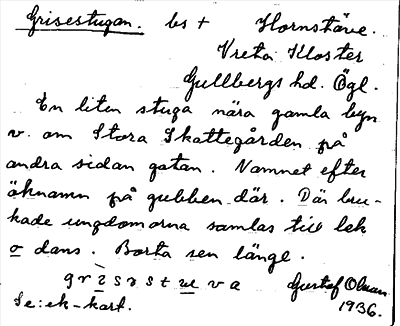 Grisestugan. bs + Hornstäve.
Vreta Kloster
Gullbergs hd. Ögl.
En liten stuga nära gamla byn
v. om Stora Skattegården på
andra sidan gatan. Namnet efter
öknamn på gubben där. Där bru-
kade ungdomarna samlas till lek
o dans. Borta sen länge.
Gustaf Olman
Se: ek-kart. 1936.